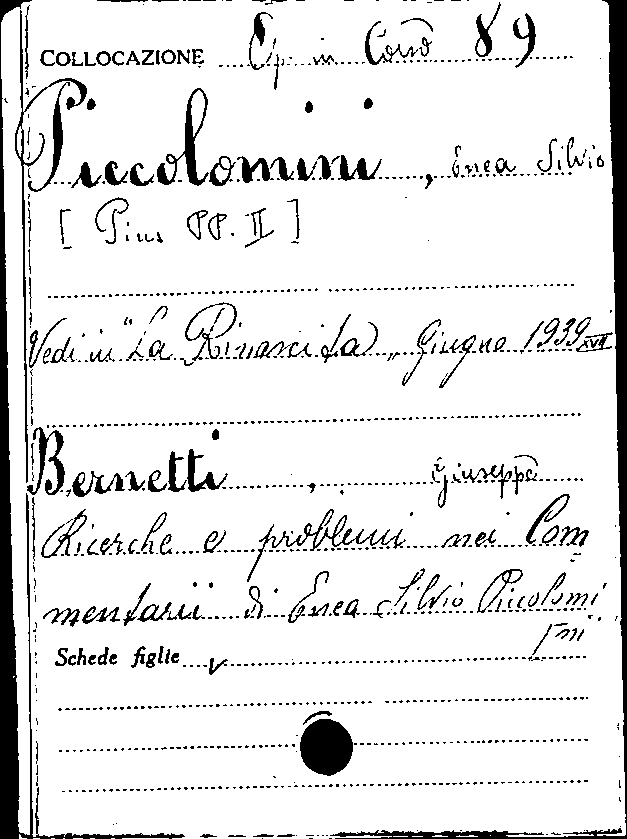 COLLOCAZIONE Cp. in Corso 89
Piccolomini, Enea Silvio
[ Pius PP. II ]
Vedi in "La Rinascita" Giugno 1939 XVII
Bernetti, Giuseppe
Ricerche e problemi nei Com
mentarii di Enea Silvio Piccolomi
[ni
Schede figlie v